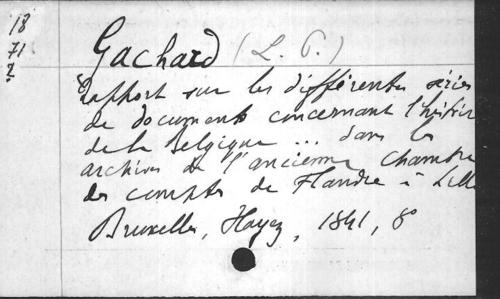 18
71
2
Gachard (L. P.)
Rapport sur les différentes séries
de documents concernant l'histoire
de la Belgique ... dans les
archives de l'ancienne Chambre
des comptes de Flandre à Lille
Bruxelles, Hayez, 1841, 8°